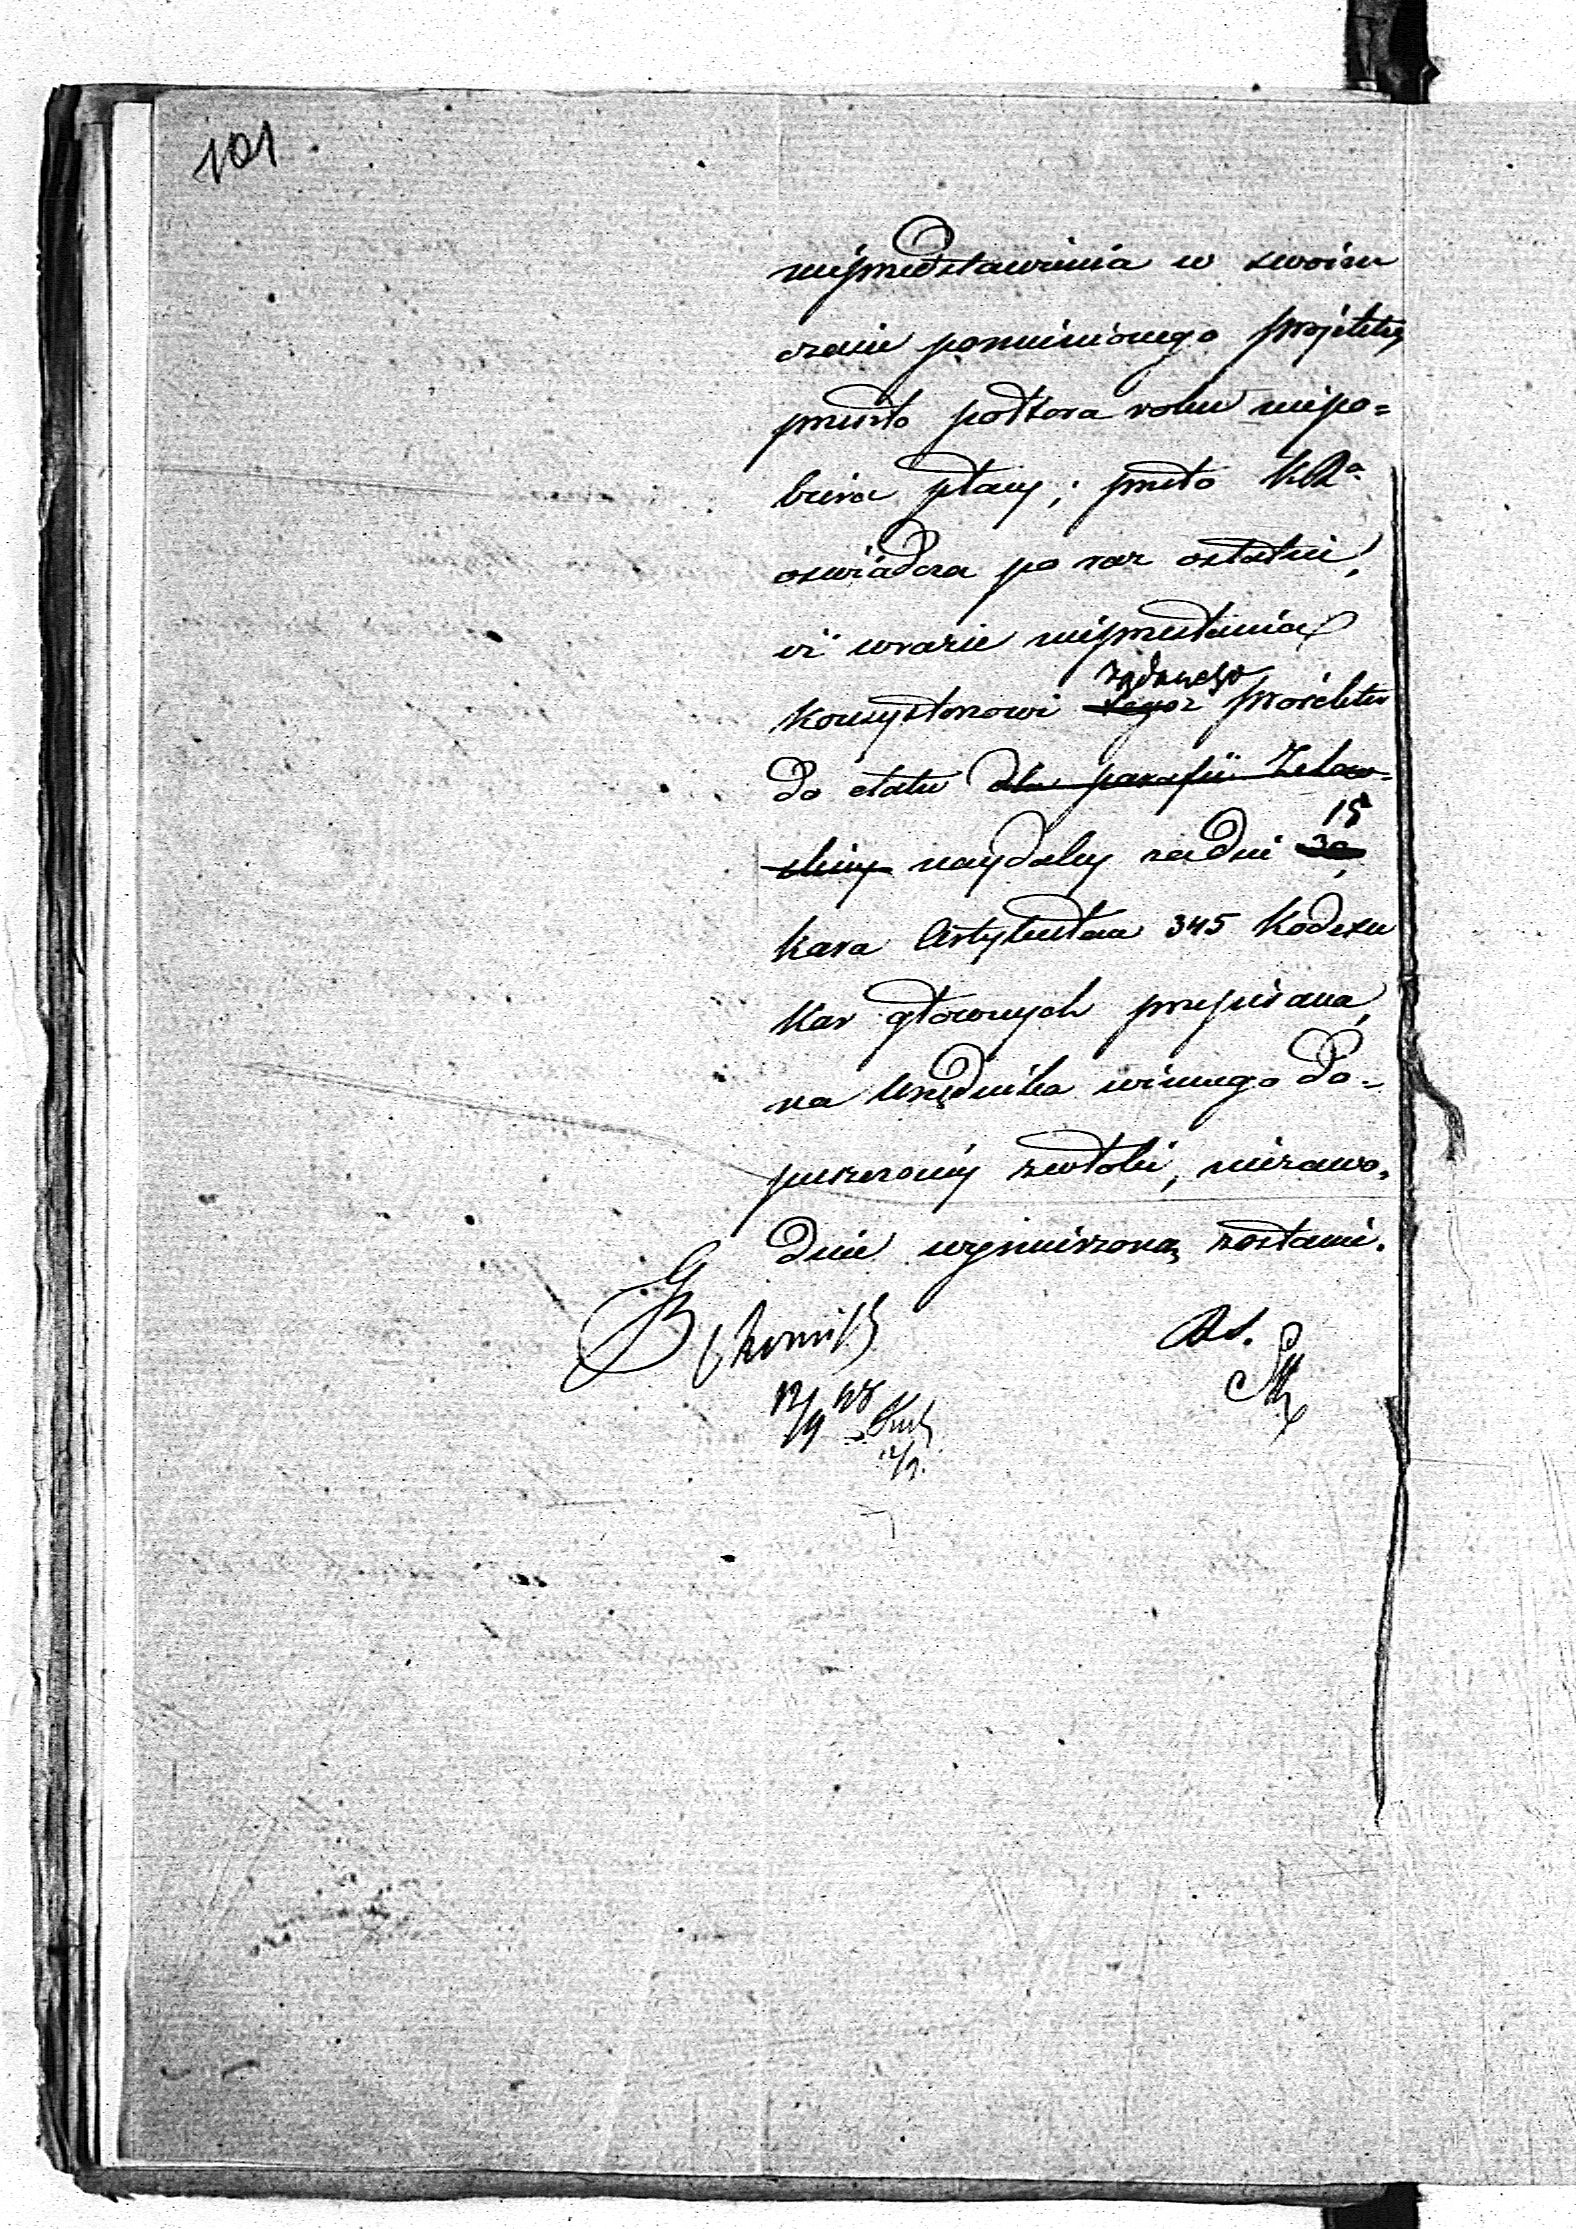 101
nieprzedstawienia w swoim
czasie pomienionego projektu,
przeszło półtora roku niepo=
biera płacy; przeto KRa
oświadcza po raz ostatni,
iż wrazie nieprzesłania
Konsystorzowi żądanego projektu
do etatu dla parafii Zelow=
skiey naydaley za dni 15
30,
kara Artykułem 345 Kodexu
Kar głównych przepisana,
na Urzędnika winnego do=
puszczoney zwłoki, niezawo=
dnie wymierzoną zostanie.
12/9 48